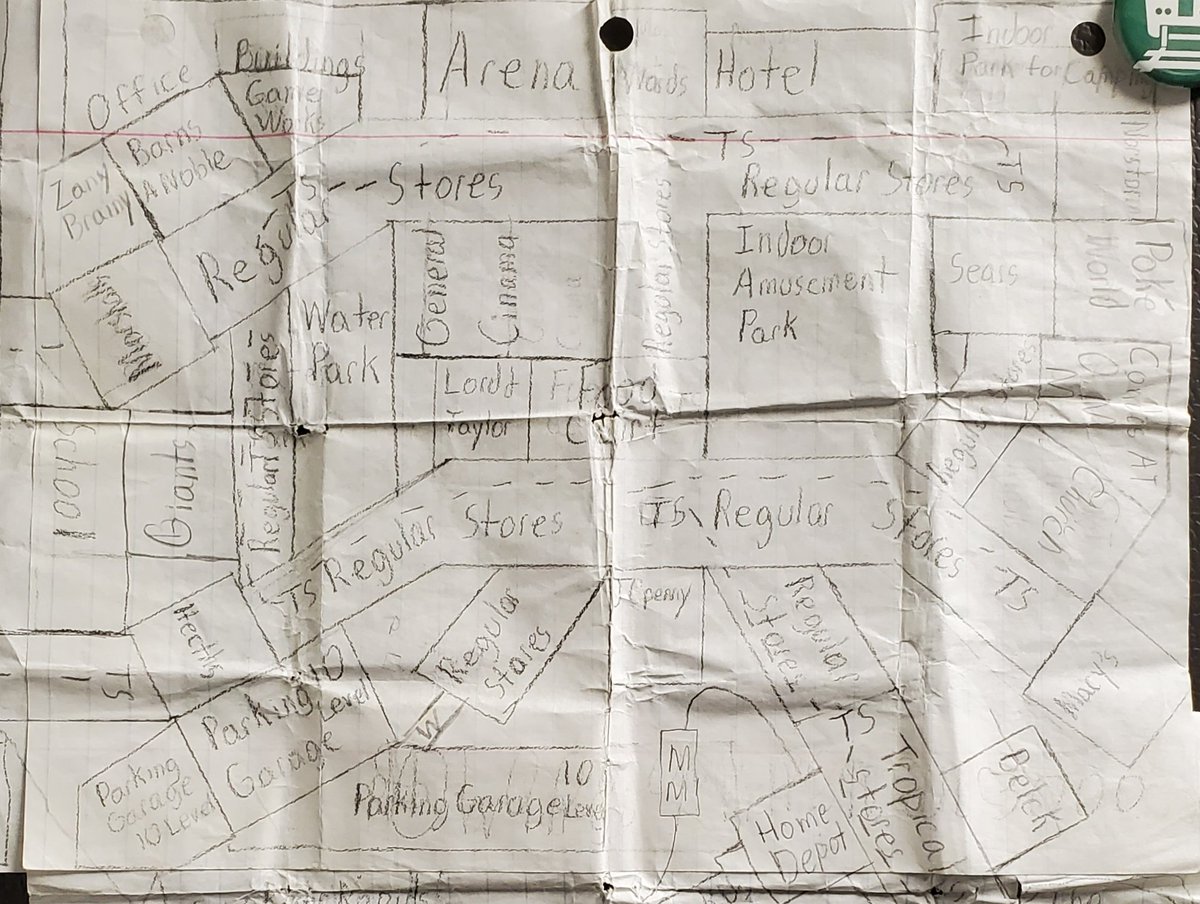 Office
Buildings
Game
Works
Arena
Wards
Hotel
Indoor
Park for
Barns
A Noble
Zany
Brainy
Marshals
TS
Stores
Regular
TS
Regular Stores
TS
Regular Stores
Water
Park
General
Cinama
Indoor
Amusement
Park
Sears
Poké
World
Lord &
Taylor
Food
Court
School
Giants
Regular Stores
Regular Stores
Church
TS Regular Stores
TS Regular Stores
TS
JCpenny
Regular
Stores
Regular
Stores
Hechts
TS
Macy's
Parking 10
Garage Level
W
Parking
Garage
10 Level
Parking Garage 10
Level
MM
MM
TS
Stores
Tropica
Belck
Home
Depot